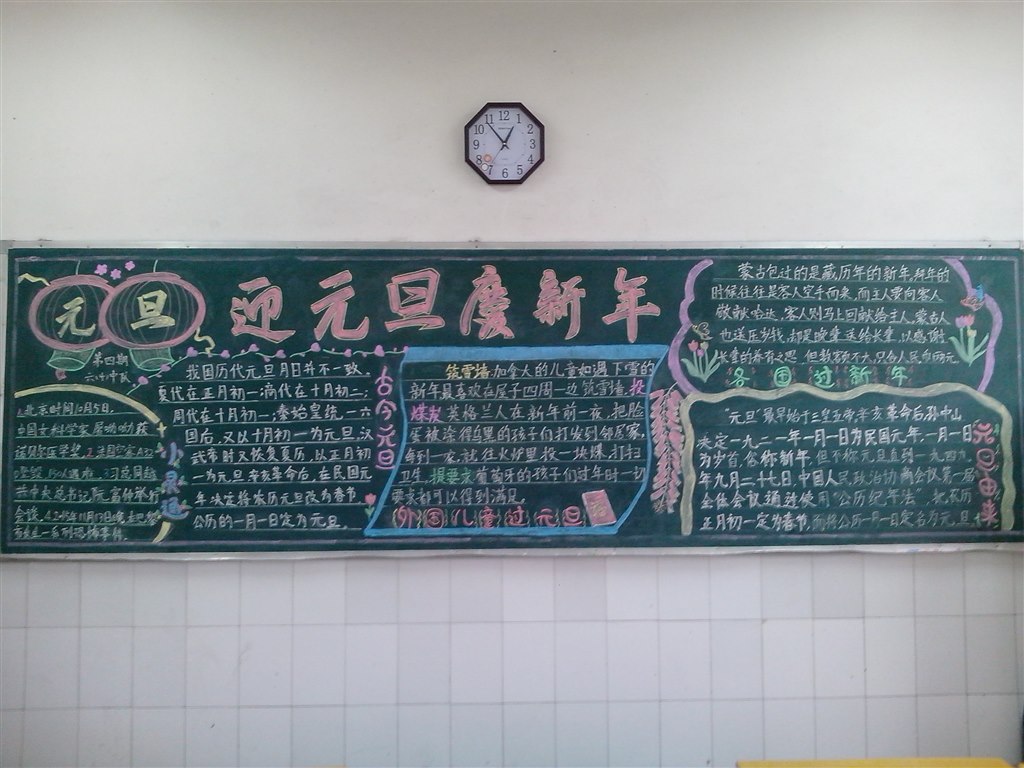 12
1
2
3
4
5
6
7
8
9
10
11
元旦
迎元旦庆新年
第四期
1.北京时间10月5日,
中国女科学家屠呦呦获
诺贝尔医学奖。
我国历代元旦月日并不一致。
夏代在正月初一;商代在十月初二;
周代在十月初一;秦始皇统一六
国后,又以十月初一为元旦,汉
武帝时又恢复夏历,以正月初
一为元旦,辛亥革命后,在民国元
年决定将农历元旦改为春节
公历的一月一日定为元旦。
古今元旦
筑雪墙:加拿大的儿童如遇下雪的
新年最喜欢在屋子四周一边筑雪墙,投
煤球 英格兰人在新年前一夜,把脸
蛋被涂得乌黑的孩子们打发到邻居家,
每到一家,就往火炉里投一块煤,打扫
卫生。提要求 葡萄牙的孩子们过年时一切
要求都可以得到满足。
外国儿童过元旦
蒙古包过的是藏历年的新年,拜年的
时候往往是客人空手而来,而主人要向客人
敬献哈达,客人则马上回献给主人。蒙古人
也送压岁钱,却是晚辈送给长辈,以感谢
长辈的养育之恩
各国过新年
“元旦”最早始于三皇五帝,辛亥革命后,孙中山
决定一九二一年一月一日为民国元年,一月一日
为岁首,愈称新年,但不称元旦直到一九四九
年九月二十七日,中国人民政治协商会议第一届
全体会议通过使用“公历纪年法”,把农历
正月初一定为春节,而将公历一月一日定名为元旦